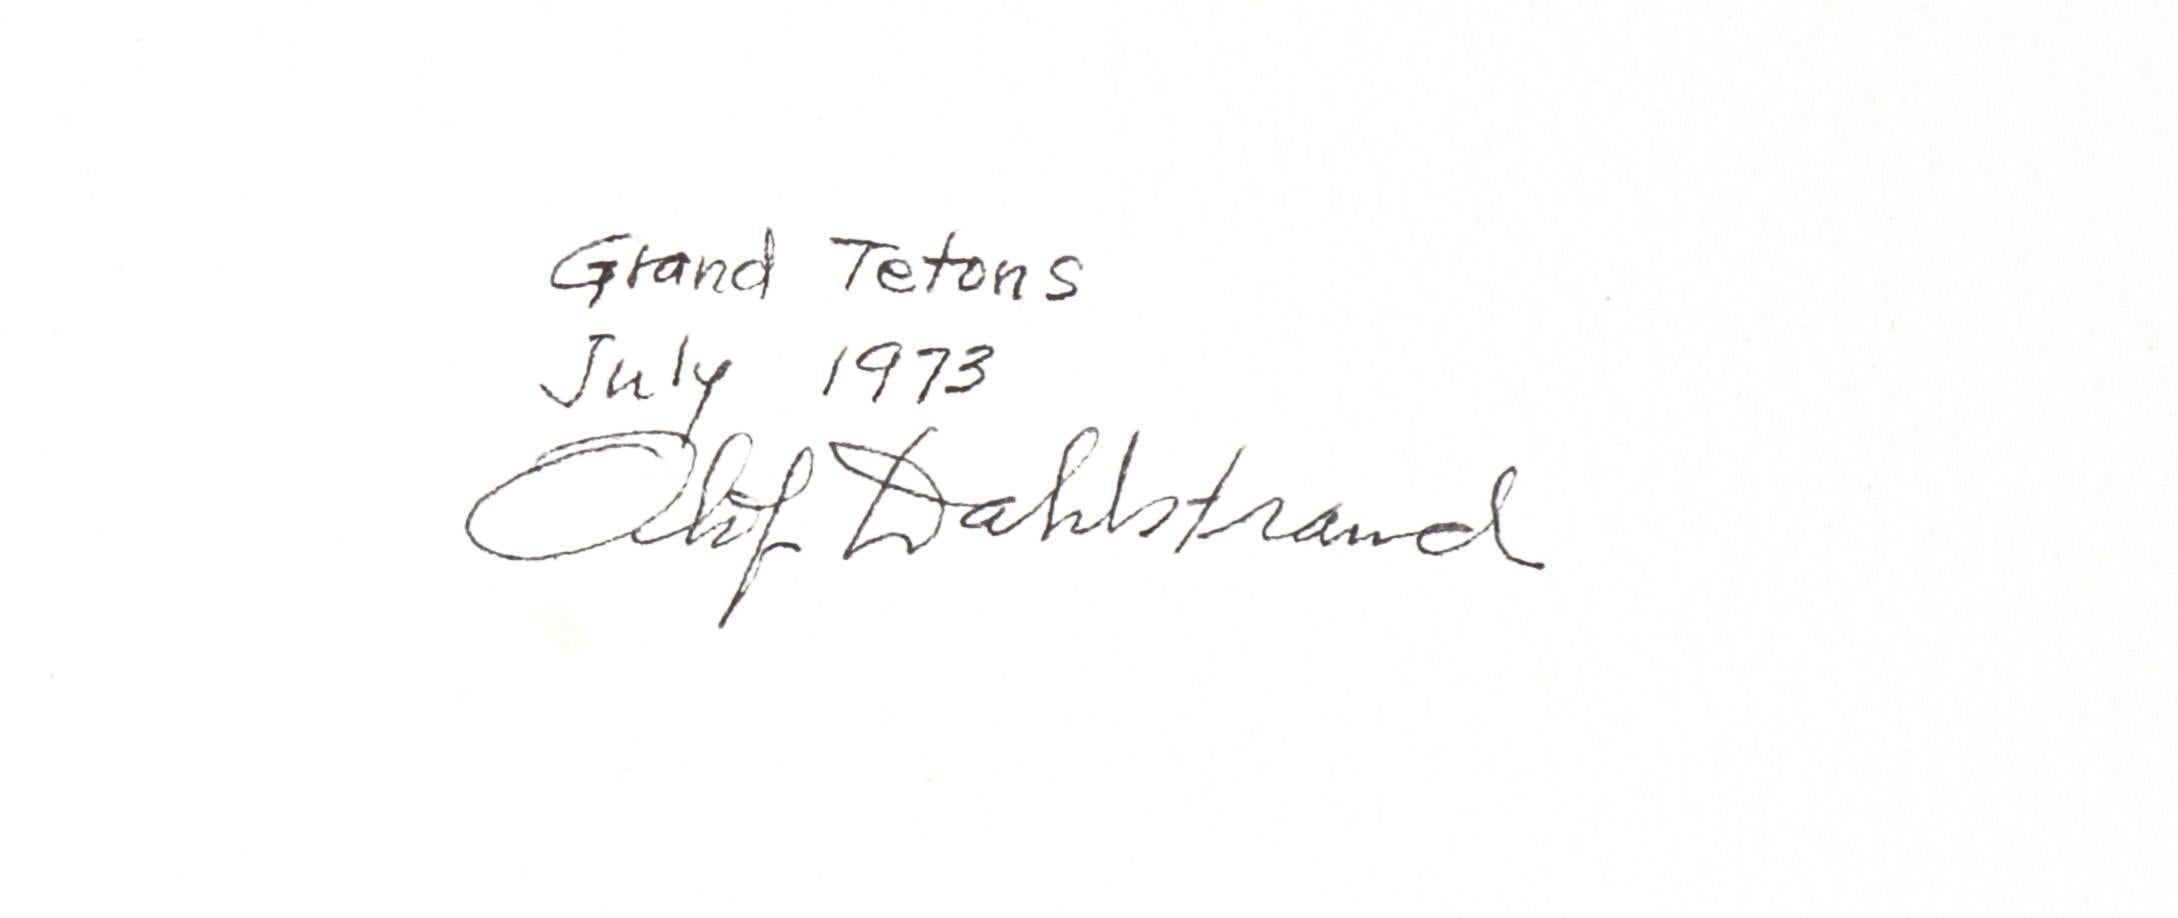 Grand Tetons
July 1973
Olof Dahlstrand